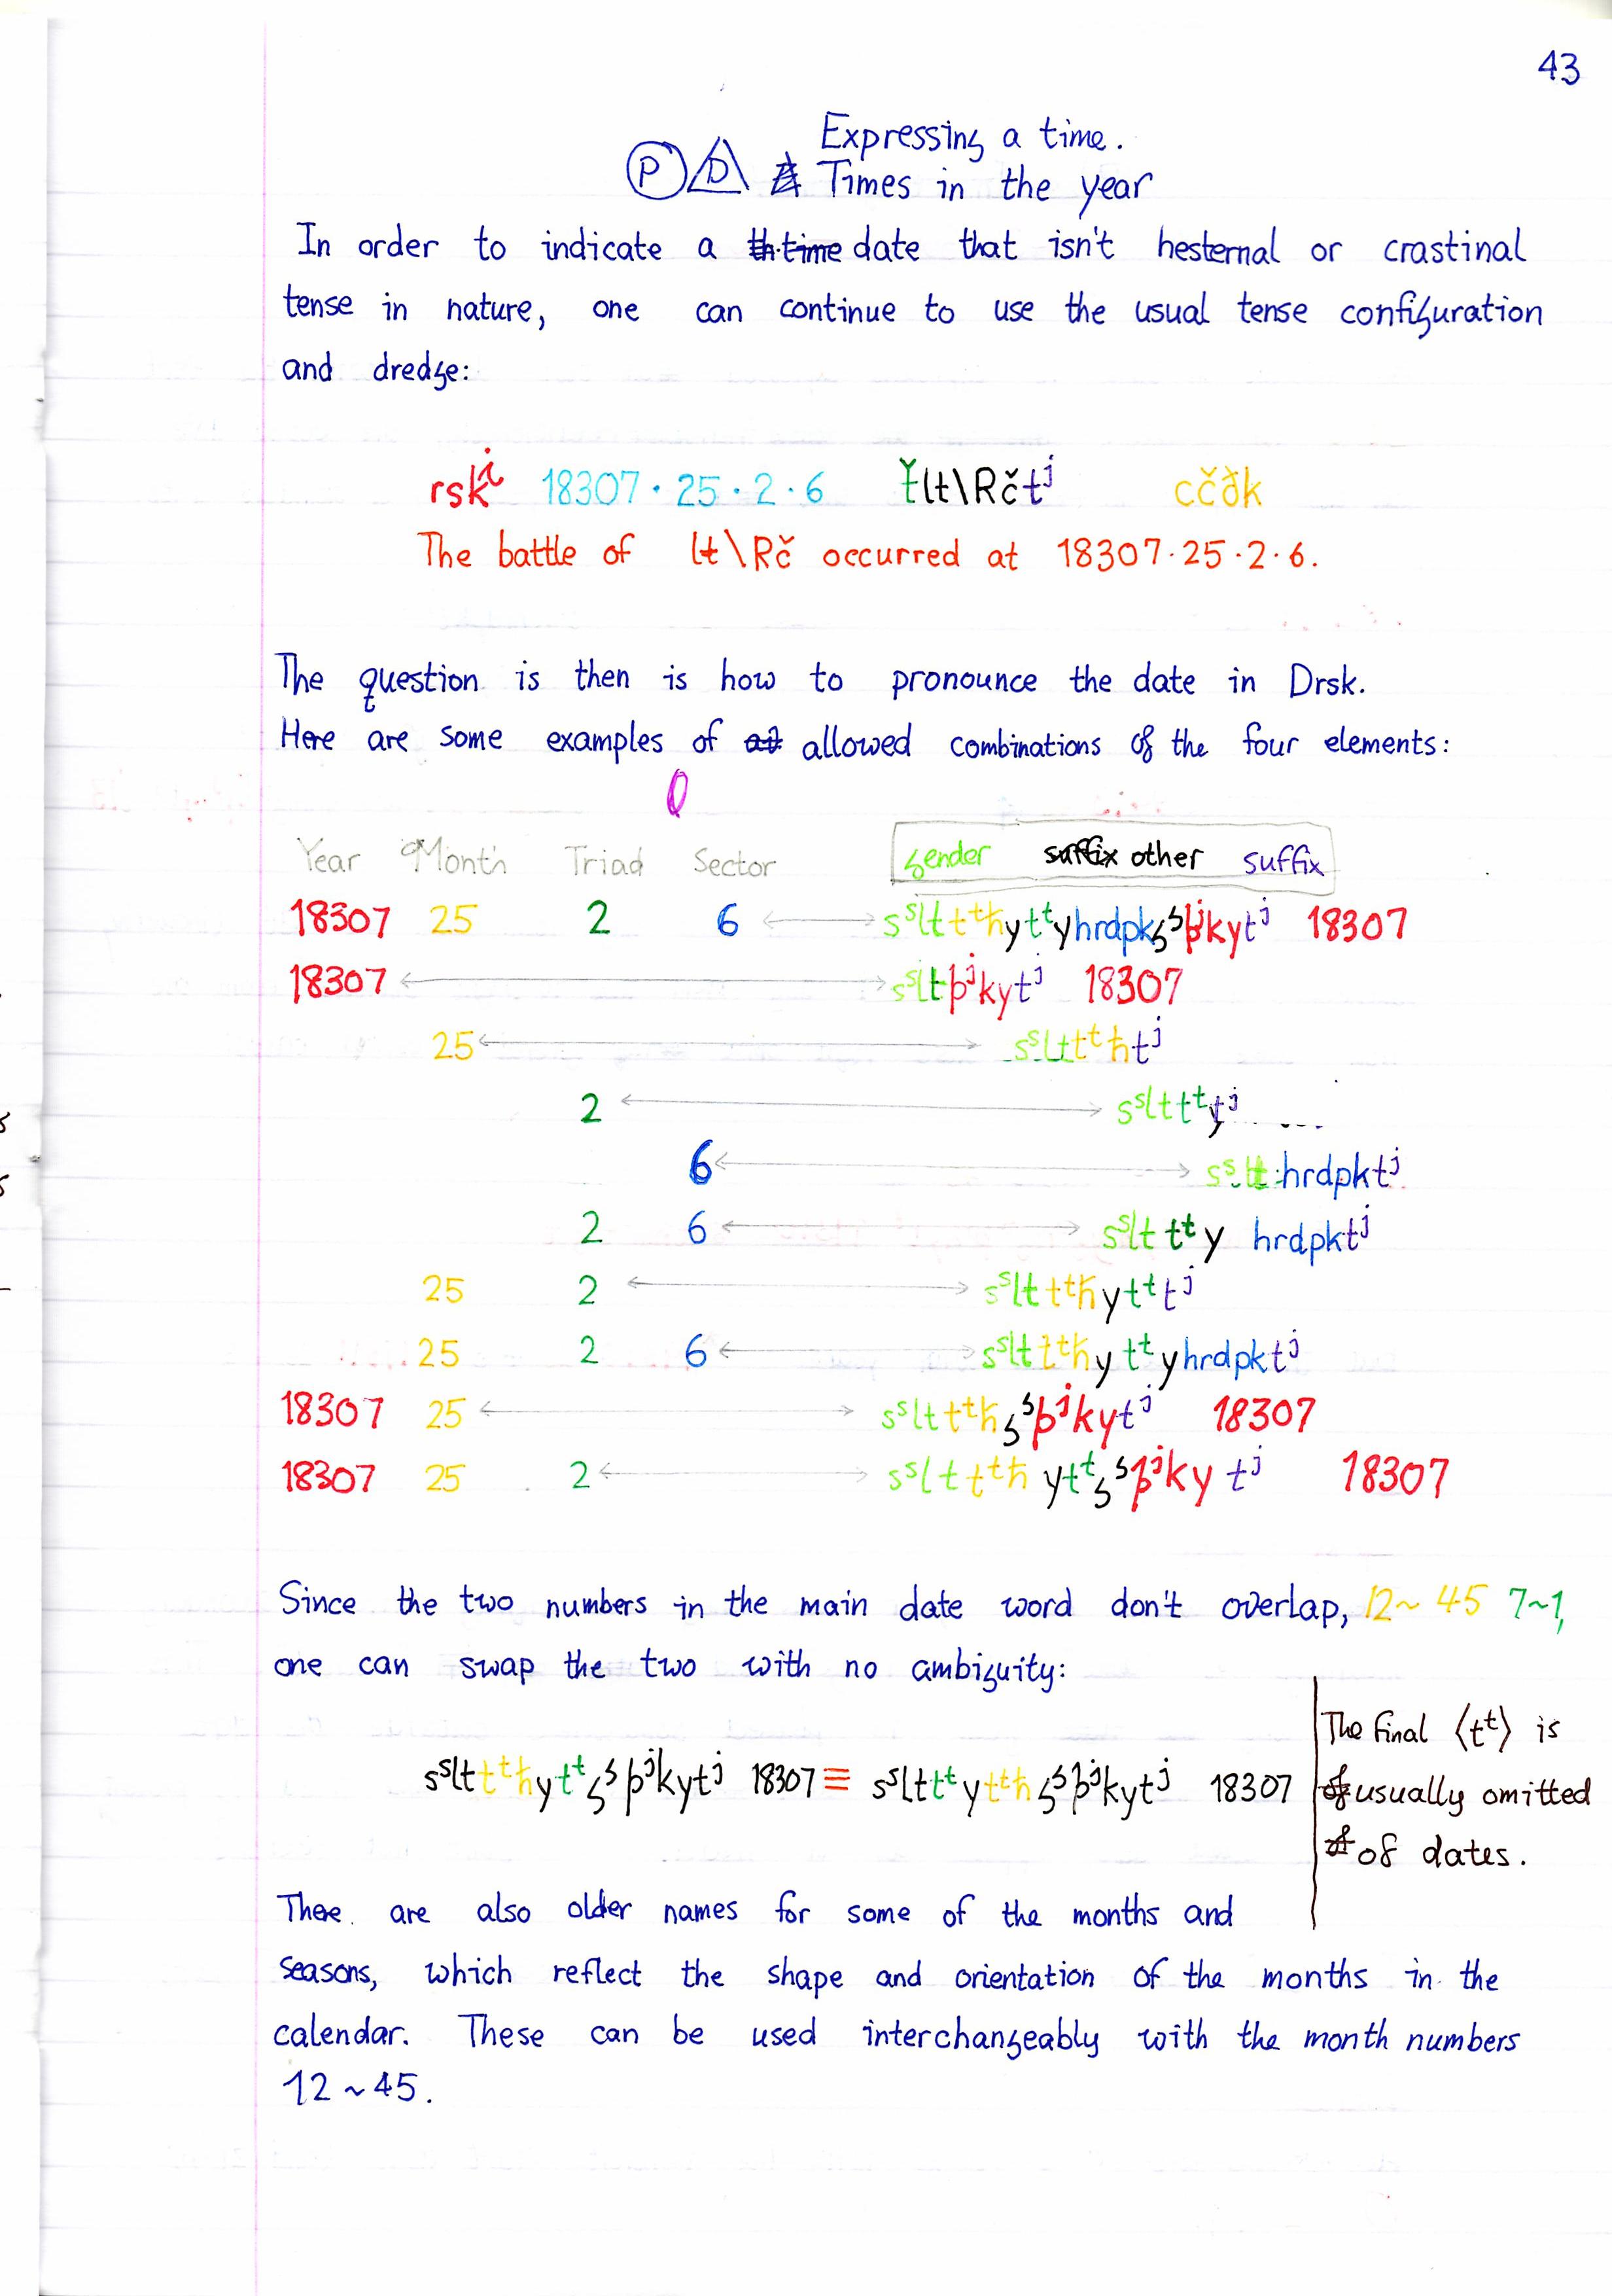 43
Expressing a time.
P D Times in the year
In order to indicate a th·time date that isn't hesternal or crastinal
tense in nature, one can continue to use the usual tense configuration
and dredge:
18307·25·2·6 cčðk
The battle of lt\Rč occurred at 18307·25·2·6.
The question is then is how to pronounce the date in Drsk.
Here are some examples of allowed combinations of the four elements:
Year Month Triad Sector gender suffix other suffix
18307 25 2 6 ↔ sˢlttᵗħytᵗyhrdpkgˢþʲkytʲ 18307
18307 ↔ sˢltþʲkytʲ 18307
25 ↔ sˢlttᵗħtʲ
2 ↔ sˢlttᵗytʲ
6 ↔ sˢlthrdpktʲ
2 6 ↔ sˢlt tᵗy hrdpktʲ
25 2 ↔ sˢlttᵗħytᵗtʲ
25 2 6 ↔ sˢlttᵗħytᵗyhrdpktʲ
18307 25 ↔ sˢlttᵗħgˢþʲkytʲ 18307
18307 25 2 ↔ sˢlttᵗħ ytᵗgˢþʲky tʲ 18307
Since the two numbers in the main date word don't overlap, 12~45 7~1,
one can swap the two with no ambiguity:
sˢlttᵗħytᵗgˢþʲkytʲ 18307 ≡ sˢlttᵗytᵗħgˢþʲkytʲ 18307
The final ⟨tᵗ⟩ is
usually omitted
of dates.
There are also older names for some of the months and
seasons, which reflect the shape and orientation of the months in the
calendar. These can be used interchangeably with the month numbers
12~45.